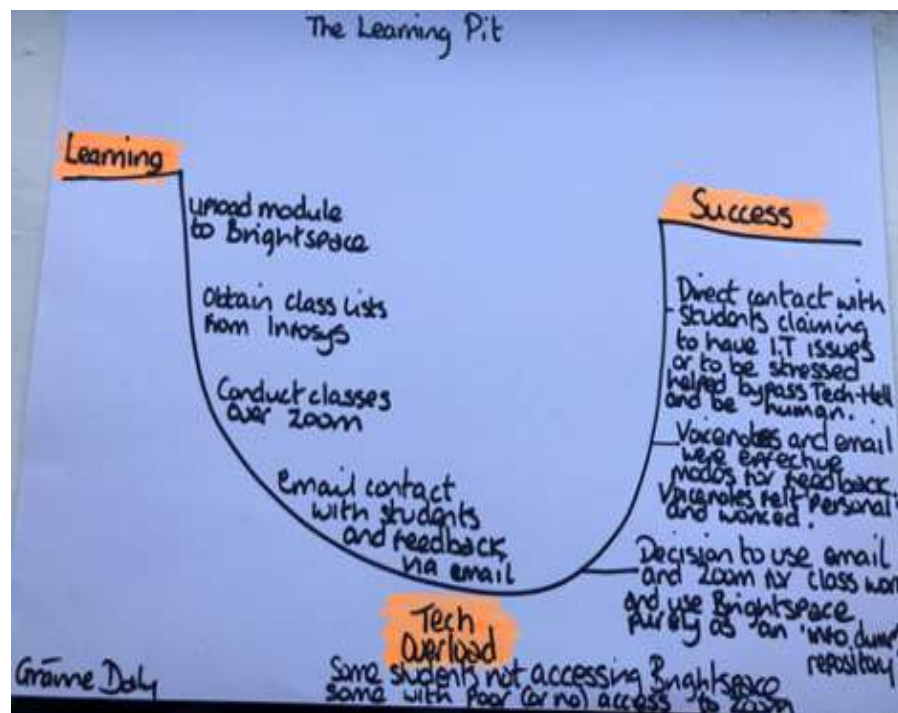 The Learning Pit
Learning
upload module
to Brightspace
Obtain class lists
from Infosys
Conduct classes
over Zoom
Email contact
with students
and feedback
via email
Tech
Overload
Some students not accessing Brightspace
some with poor (or no) access to Zoom
Success
Direct contact with
students claiming
to have I.T issues
or to be stressed
helped bypass Tech-Hell
and be human.
Voicenotes and email
were effective
modes for feedback.
Voicenotes felt personal
and worked.
Decision to use email
and Zoom for class work
and use Brightspace
purely as an 'info dump'
repository
Gráinne Daly